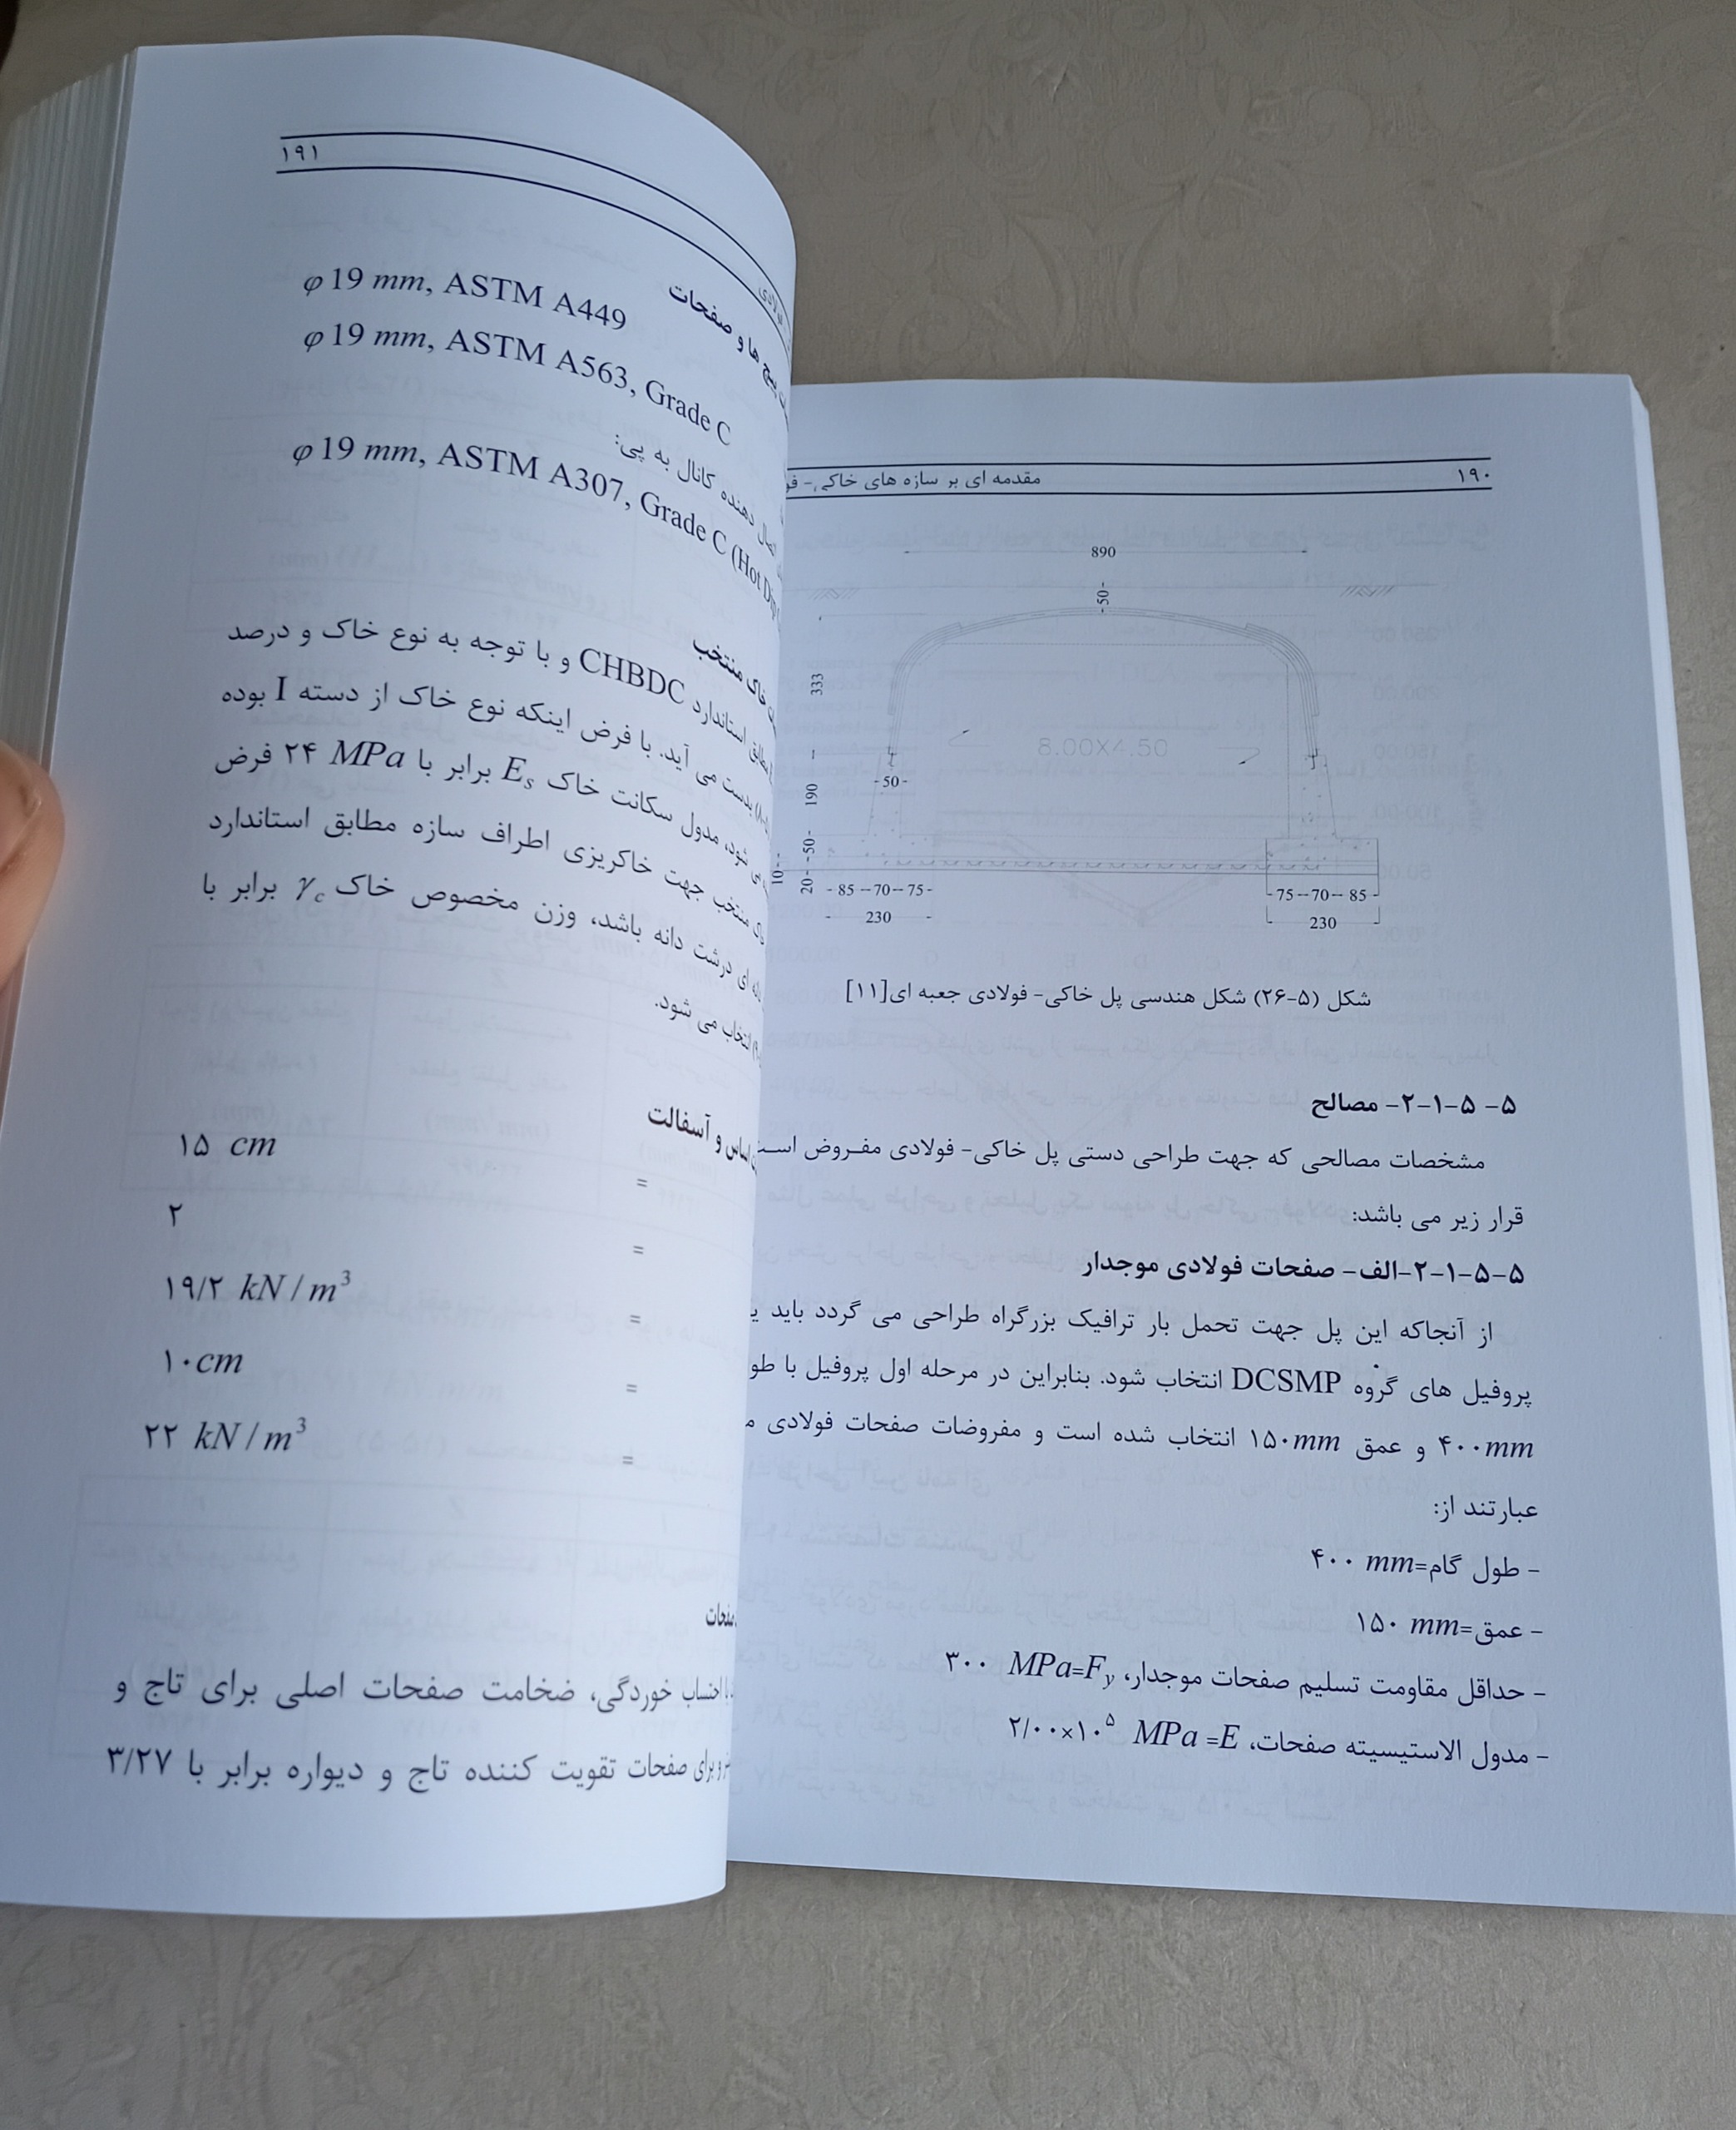 ۱۹۰
مقدمه ای بر سازه های خاکی-
890
-50-
333
8.00X4.50
-50-
190
-50-
20-
10-
- 85 --70-- 75-
230
-75--70-- 85-
230
شکل (۵-۲۶) شکل هندسی پل خاکی- فولادی جعبه ای[۱۱]
۵- ۵-۱-۲- مصالح
مشخصات مصالحی که جهت طراحی دستی پل خاکی- فولادی مفـروض
قرار زیر می باشد:
۵-۵-۱-۲-الف- صفحات فولادی موجدار
از آنجاکه این پل جهت تحمل بار ترافیک بزرگراه طراحی می گردد باید
پروفیل های گروه DCSMP انتخاب شود. بنابراین در مرحله اول پروفیل با
۴۰۰mm و عمق ۱۵۰mm انتخاب شده است و مفروضات صفحات فولادی
عبارتند از:
- طول گام=۴۰۰ mm
- عمق=۱۵۰ mm
- حداقل مقاومت تسلیم صفحات موجدار، ۳۰۰ MPa=Fy
- مدول الاستیسیته صفحات، ۲/۰۰×۱۰⁵ MPa =E
۱۹۱
پیچ ها و صفحات
φ 19 mm, ASTM A449
φ 19 mm, ASTM A563, Grade C
دهنده کانال به پی:
φ 19 mm, ASTM A307, Grade C (Hot
خاک منتخب
استاندارد CHBDC و با توجه به نوع خاک و درصد
بدست می آید. با فرض اینکه نوع خاک از دسته I بوده
شود، مدول سکانت خاک Es برابر با ۲۴ MPa فرض
منتخب جهت خاکریزی اطراف سازه مطابق استاندارد
درشت دانه باشد، وزن مخصوص خاک γc برابر با
انتخاب می شود.
و آسفالت
= ۱۵ cm
= ۲
= ۱۹/۲ kN / m³
= ۱۰cm
= ۲۲ kN / m³
صفحات
احتساب خوردگی، ضخامت صفحات اصلی برای تاج و
برای صفحات تقویت کننده تاج و دیواره برابر با ۳/۲۷